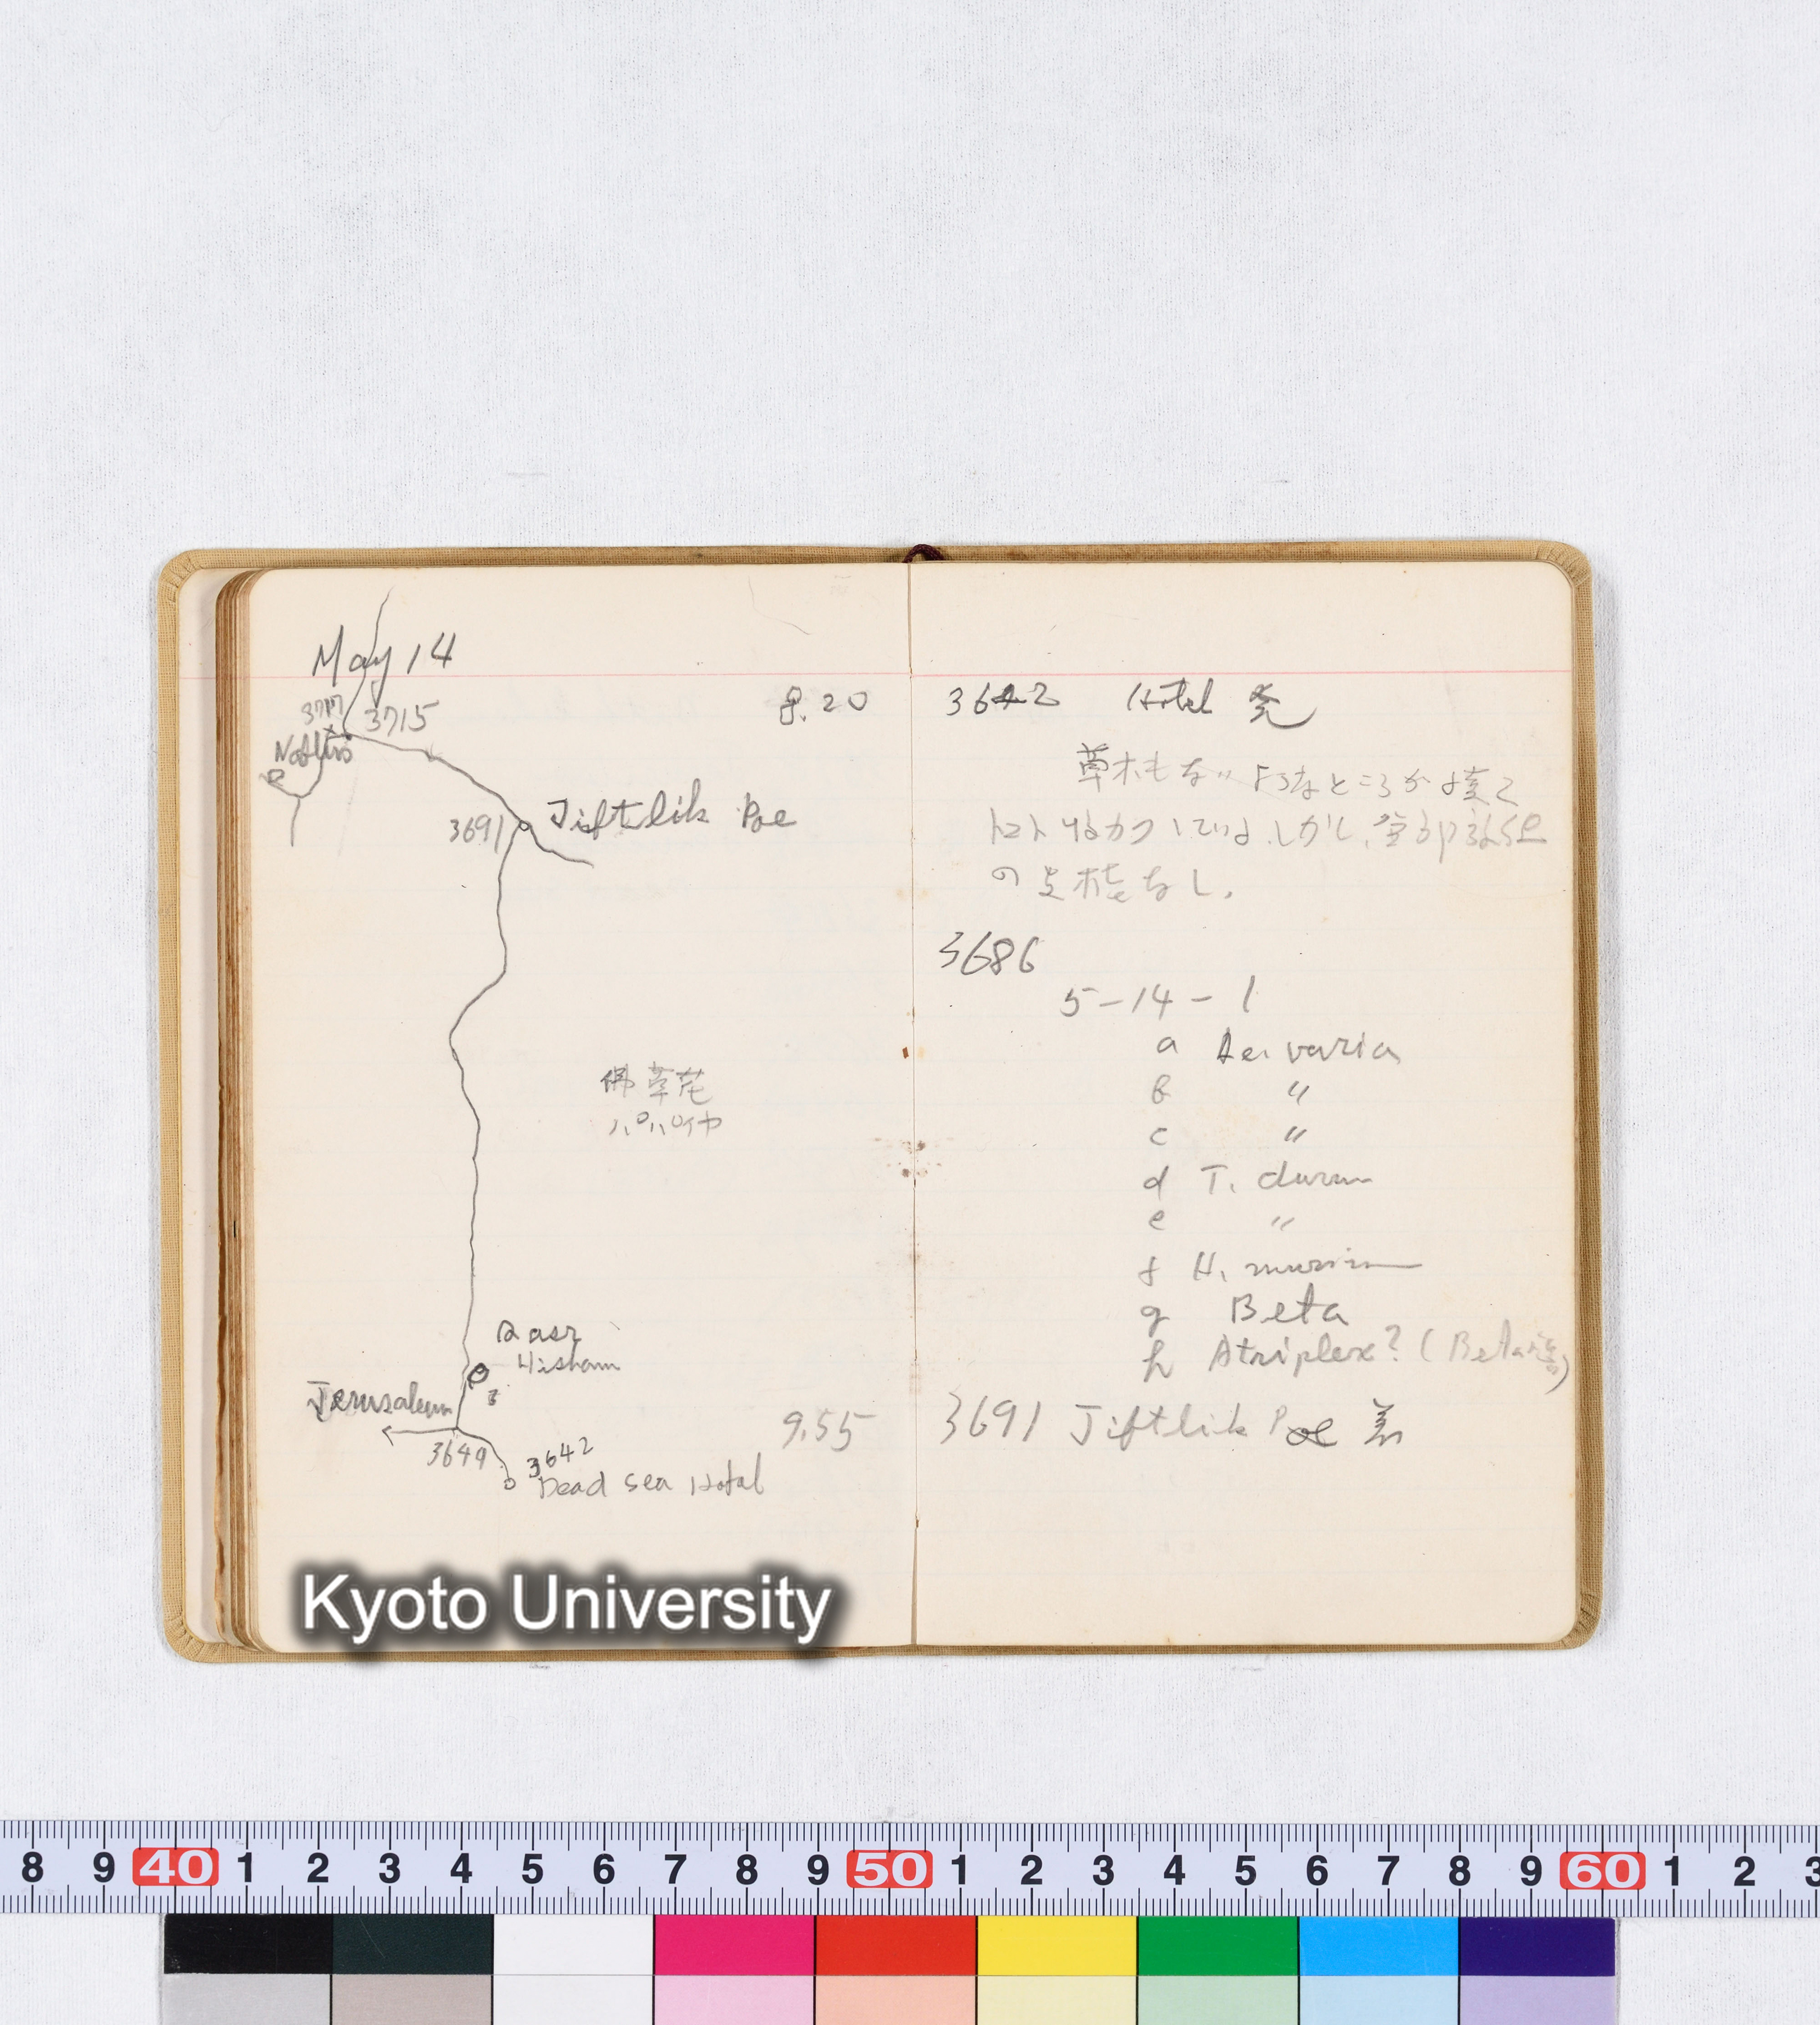 May 14
3717
3715
Nablus
3691
Jiftlik Poe
佛草花
パパイヤ
Qasr
Hisham
Jerusalem
3649
3642
Dead Sea Hotel
8.20
9.55
3642 Hotel 発
草木もないようなところが
しかし
の
なし.
3686
5-14-1
a Ae. varia
b "
c "
d T. durum
e "
f H. murinum
g Beta
h Atriplex? (Beta
3691 Jiftlik Poe 着
Kyoto University
8 9 40 1 2 3 4 5 6 7 8 9 50 1 2 3 4 5 6 7 8 9 60 1 2 3